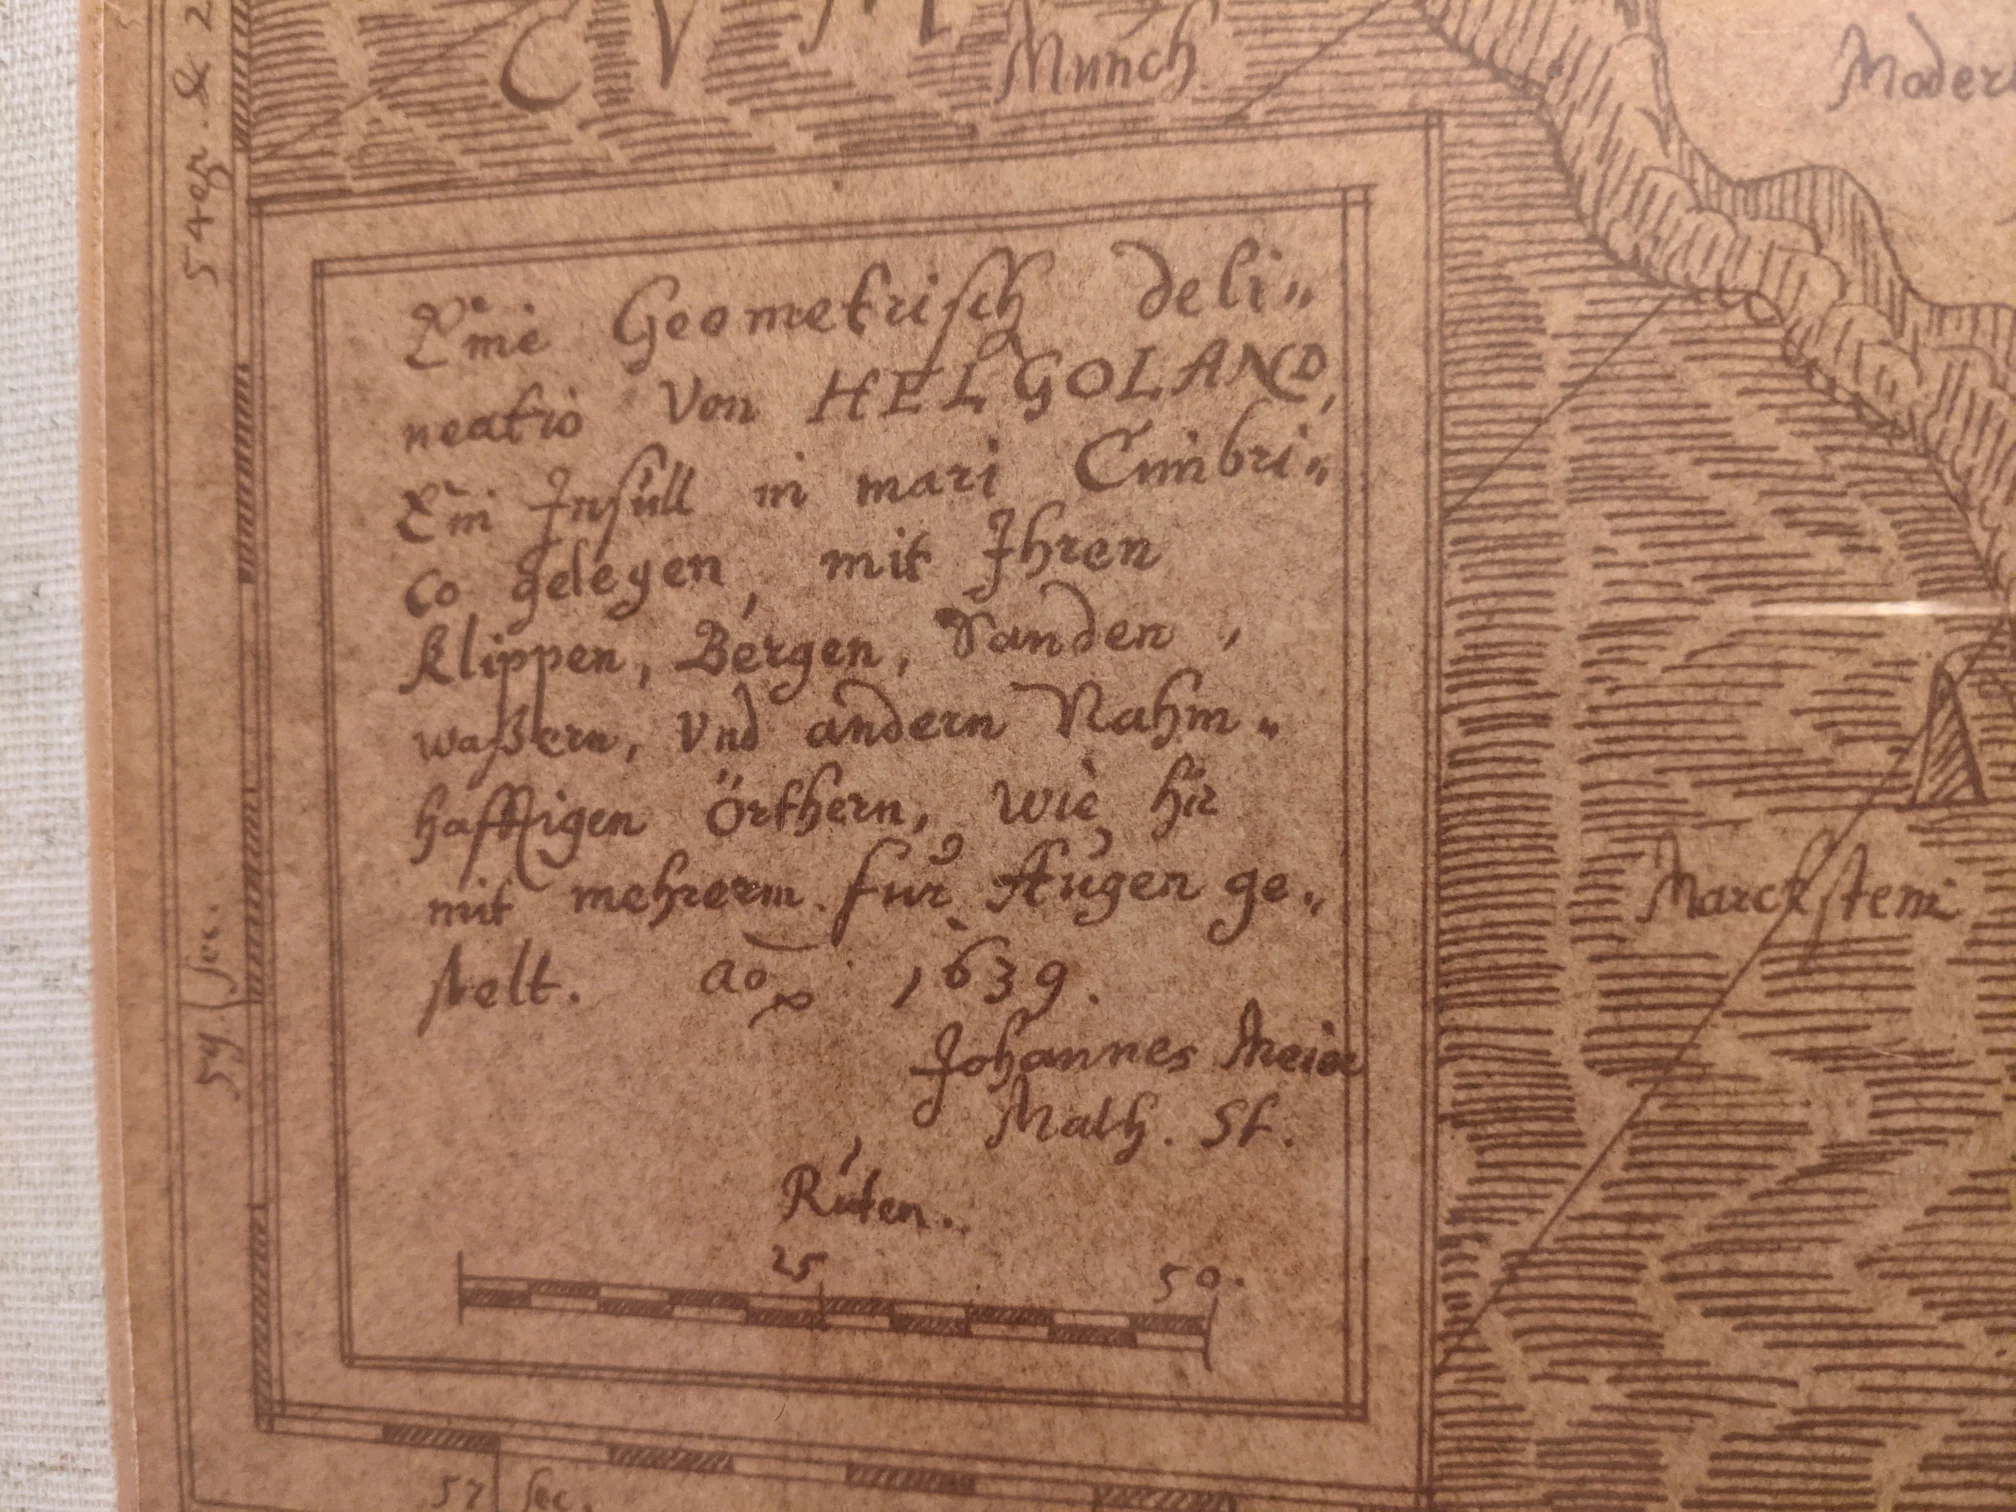 Münch.
Eine Geometrisch deli„
neatio Von HELGOLAND,
Ein Insull in mari Cimbri„
co gelegen, mit Ihren
Klippen, Bergen, Sanden,
waßern, Vnd andern Nahm„
hafftigen örthern, wie hir
mit mehrerm für Augen ge„
stelt. ao 1639.
Johannes Meier
Math. St.
Ruten.
25 50.
Marckstein
57 sec.